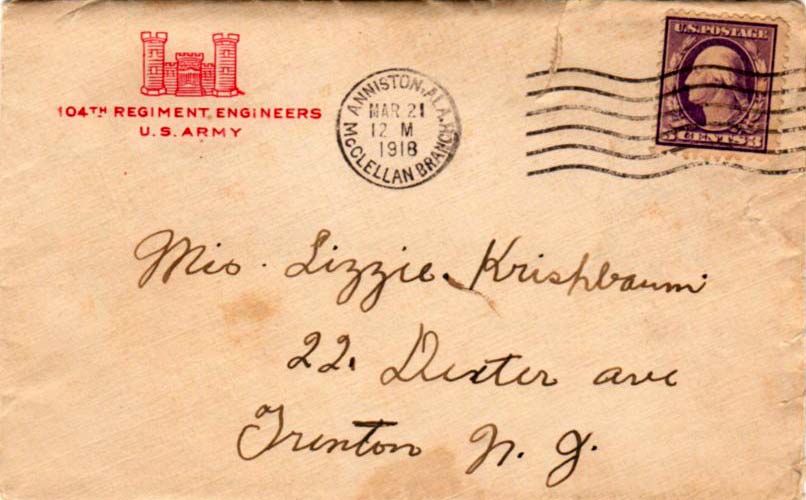 104TH REGIMENT ENGINEERS
U.S. ARMY
ANNISTON, ALA.
MAR 21
12 M
1918
McCLELLAN BRANCH
U.S. POSTAGE
3 CENTS 3
Mis. Lizzie Krishbaum
22. Dexter ave
Trenton N. J.